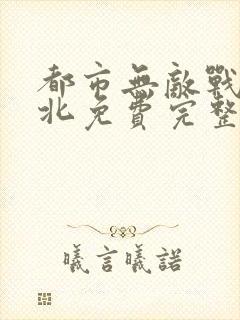 都市無敵戰
北免費完整
曦言曦諾